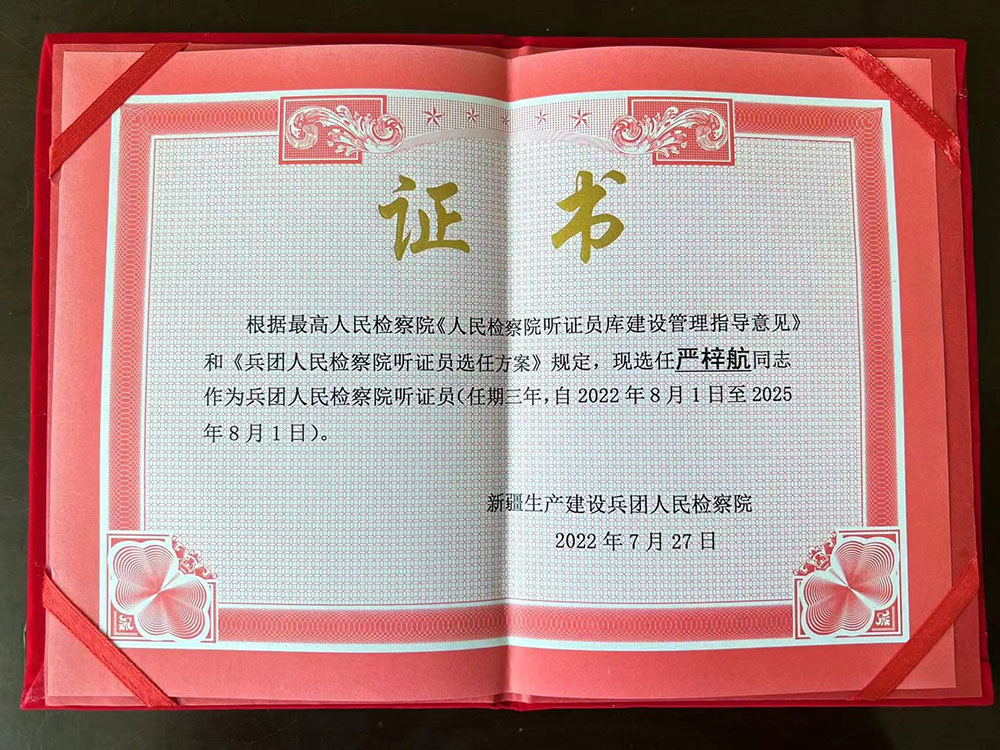 证书
根据最高人民检察院《人民检察院听证员库建设管理指导意见》
和《兵团人民检察院听证员选任方案》规定，现选任严梓航同志
作为兵团人民检察院听证员(任期三年，自2022年8月1日至2025
年8月1日)。
新疆生产建设兵团人民检察院
2022年7月27日